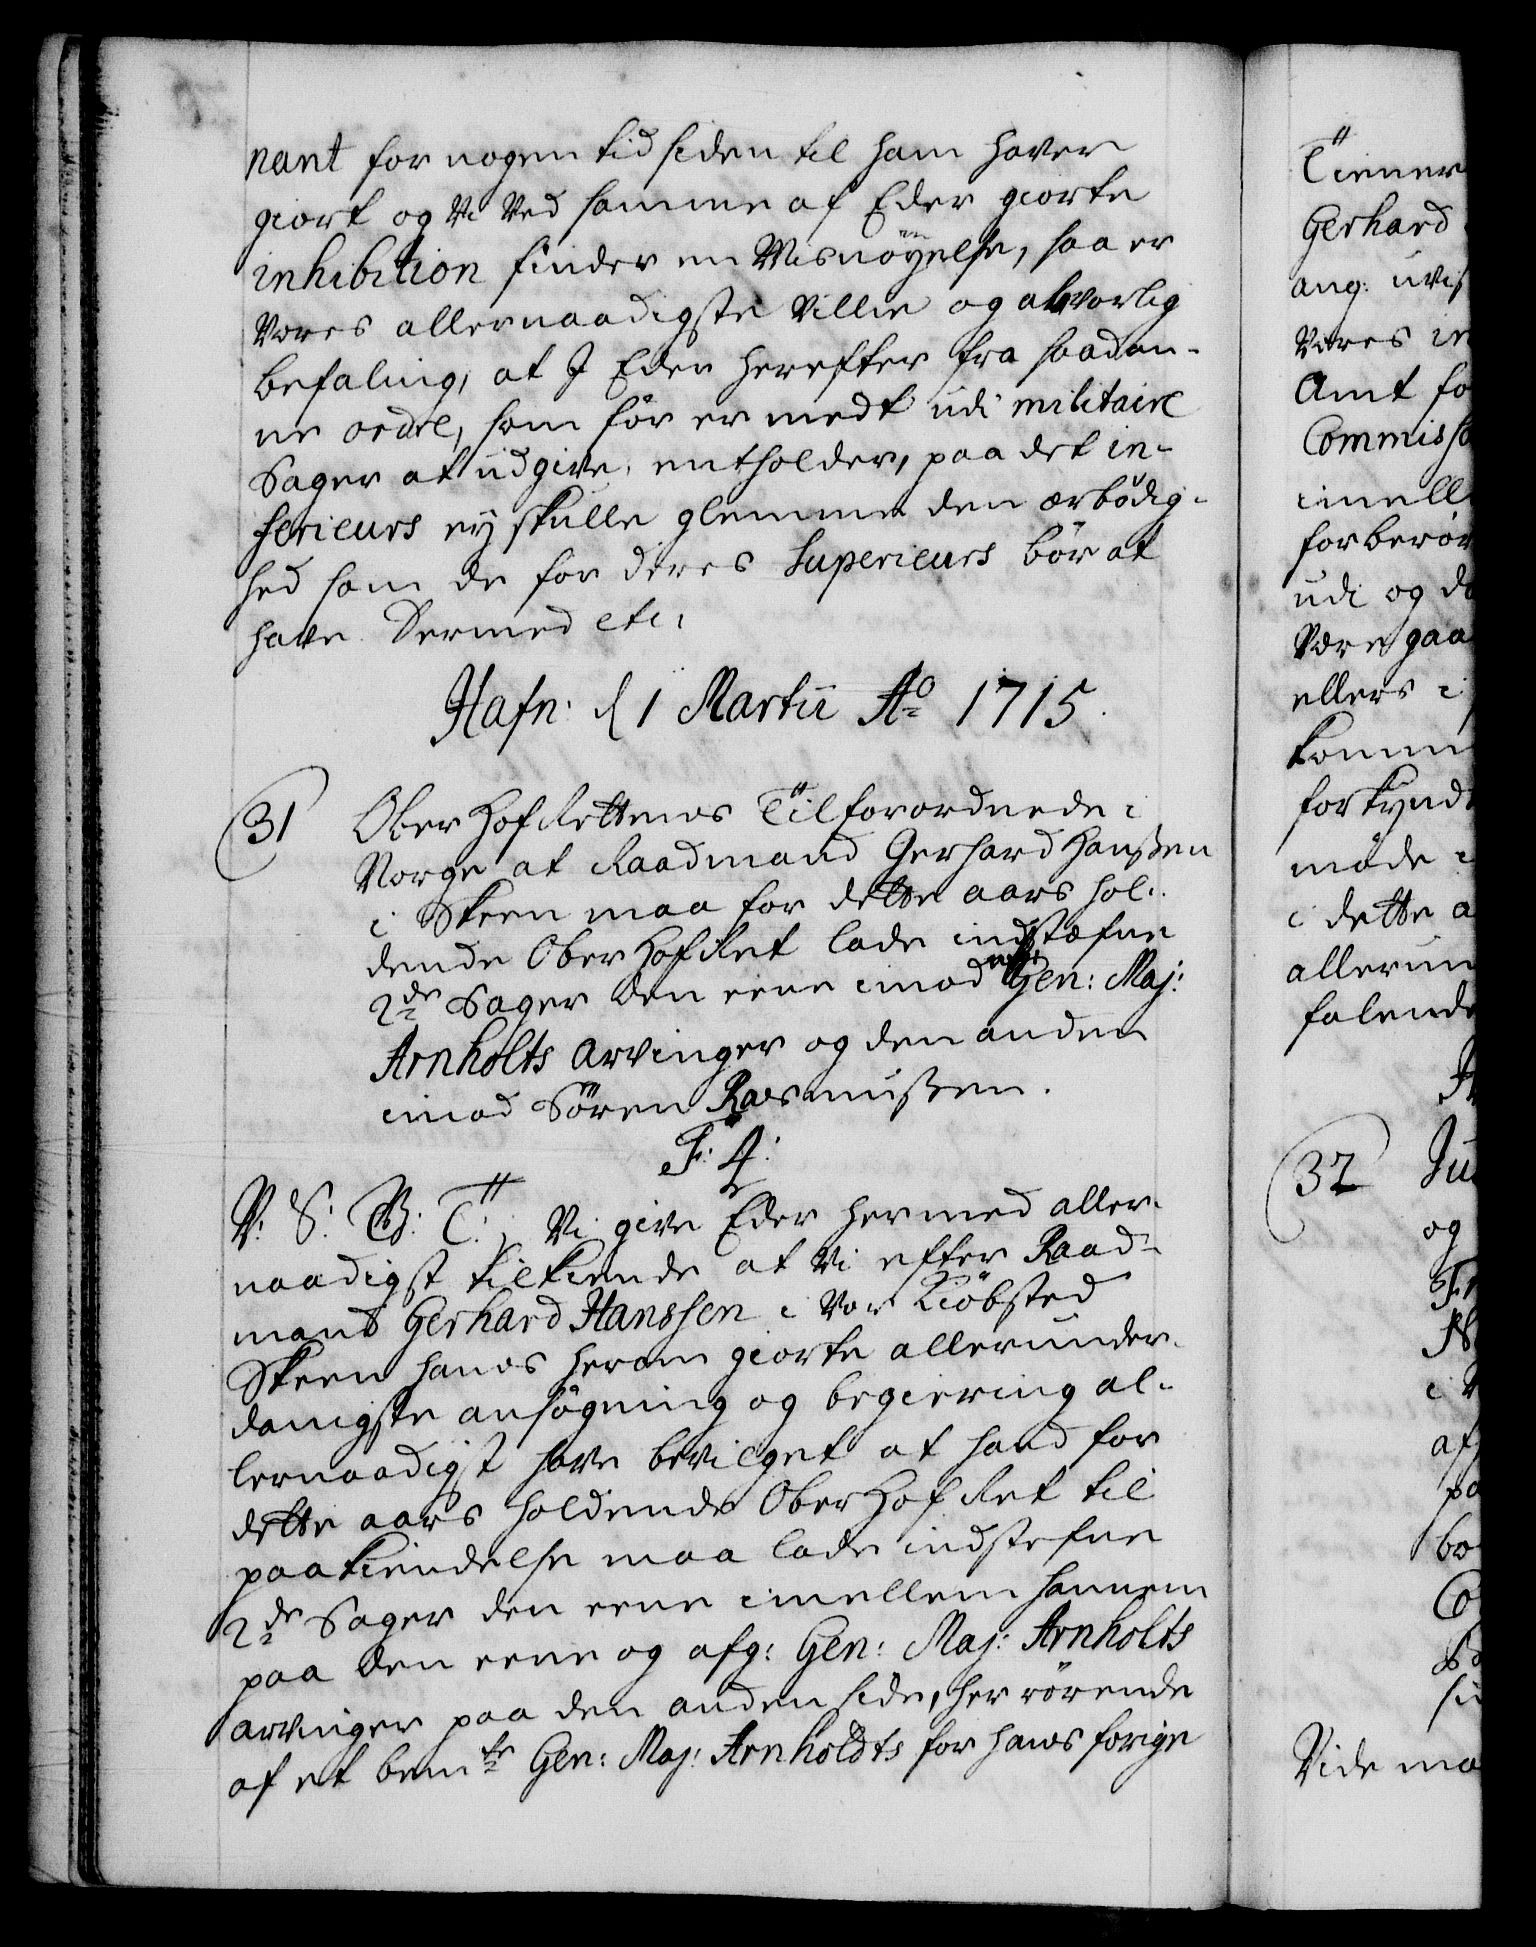 nant for nogen tid siden til ham haver
giort og Vi Ved samme af Eder giorte
inhibition finder en Misnöyelse, saa er
Vores allernaadigste Villie og alvorlig
befaling, at I Eder herefter fra saadan-
ne ordre, som för er meldt udi militaire
Sager at udgive, entholder, paa det in-
ferieurs ej skulle glemme den ærbödig-
hed som de for deres Superieurs bör at
have. Dermed etc:
Hafn: d 1 Martii Ao 1715.
31 Ober Hof Rettens Tilforordnede i
Norge at Raadmand Gerhard Hanssen
i Skeen maa for dette aars hol-
dende Ober Hof Ret lade indstæfne
2de Sager den eene imod Gen: Maj:
Arnholts Arvinger og den anden
imod Sören Rasmussen.
F: 4:
V: S: G: T: Vi give Eder hermed aller-
naadigst tilkiende at Vi efter Raad-
mand Gerhard Hanssen i Vor Kiöbsted
Skeen hans herom giorte allerunder-
danigste ansögning og begiering al-
lernaadigst have bevilget at hand for
dette aars holdende Ober Hof Ret til
paakiendelse maa lade indstefne
2de Sager den eene imellem hannem
paa den eene og afg: Gen: Maj: Arnholts
arvinger paa den anden side, her rörende
af et bemte Gen: Maj: Arnholdts for hans forige
Tiener
Gerhard
ang: uvis
Vores in
Amt fo
Commisso
imell
forberör
udi og da
Være gaa
ellers i
komm
forkynd
möde i
i dette a
allerun
falende
32 Ju
og
Fr
i
af
pa
bo
Co
Vide ma